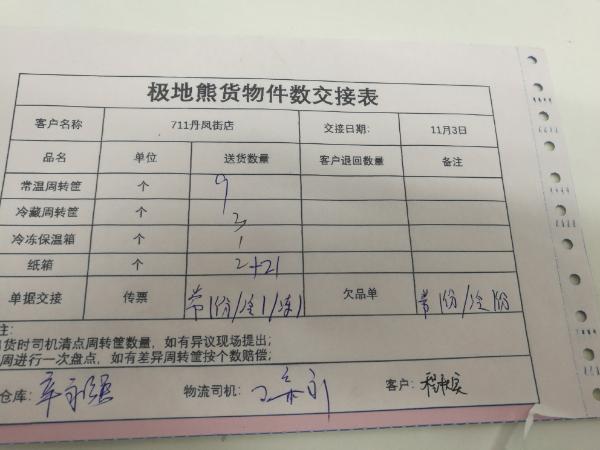 极地熊货物件数交接表
客户名称 711丹凤街店 交接日期: 11月3日
品名 单位 送货数量 客户退回数量 备注
常温周转筐 个 9
冷藏周转筐 个 3
冷冻保温箱 个 1
纸箱 个 2+21
单据交接 传票 常1份/冷1/冻1 欠品单 常1份/冷1份
注:
货时司机清点周转筐数量,如有异议现场提出;
周进行一次盘点,如有差异周转筐按个数赔偿;
仓库: 物流司机: 客户: